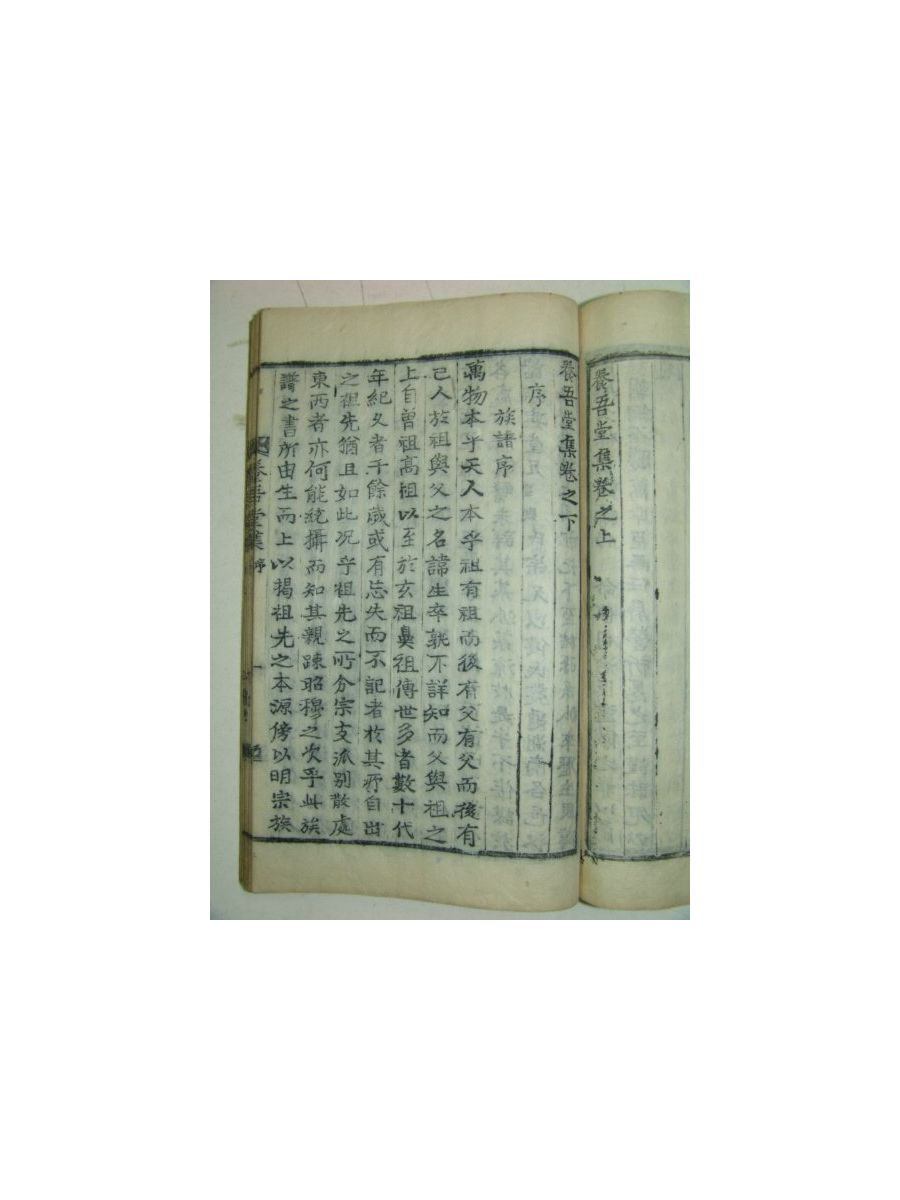 養吾堂集卷之上
養吾堂集卷之下
序
族譜序
萬物本乎天人本乎祖有祖而後有父有父而後有
己人於祖與父之名諱生卒孰不詳知而父與祖之
上自曾祖高祖以至於玄祖鼻祖傳世多者數十代
年紀久者千餘歲或有忘失而不記者於其所自出
之祖先猶且如此況乎祖先之所分宗支派別散處
東西者亦何能統攝而知其親踈昭穆之次乎此族
譜之書所由生而上以揭祖先之本源傍以明宗族
養吾堂集 序 一